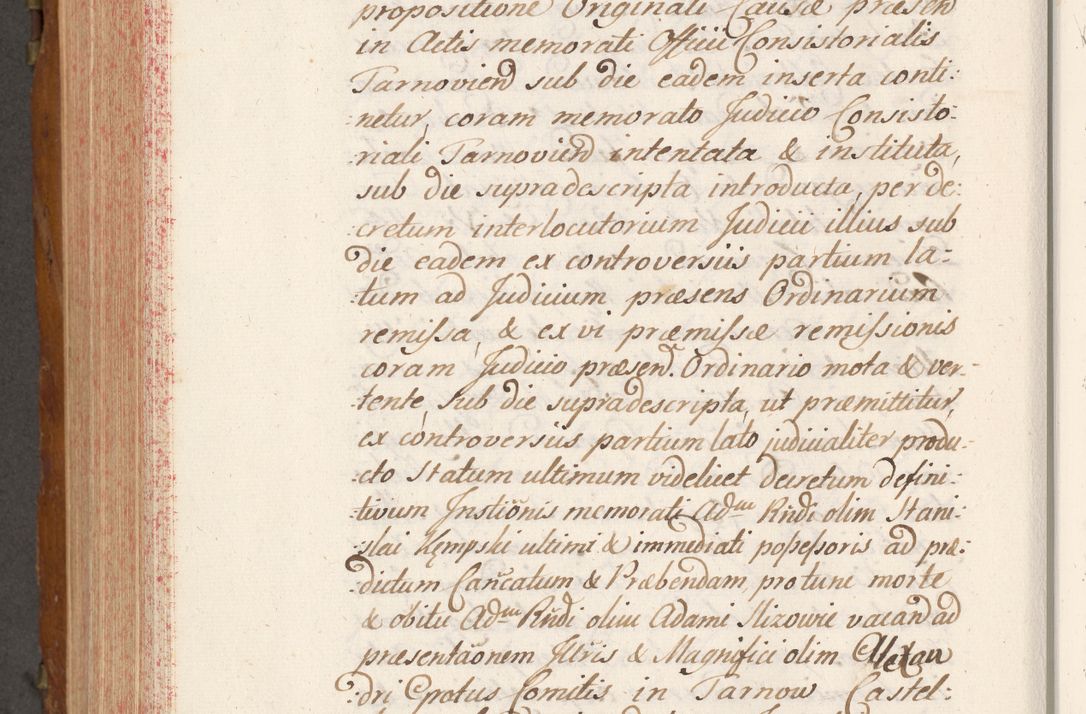 propositione Originali Causæ præsen
in Actis memorati Officii Consistorialis
Tarnovien sub die eadem inserta conti:
:netur, coram memorato Judicio Consisto:
:riali Tarnovien intentata & instituta,
sub die supradescripta introducta, per de:
:cretum interlocutorium Judicii illius sub
die eadem ex controversiis partium la:
:tum ad Judicium præsens Ordinarium
remissa, & ex vi præmissæ remissionis
coram Judicio præsen. Ordinario mota & ver:
:tente, sub die supradescripta, ut præmittitur,
ex controversiis partium lato judicialiter produ:
:cto statum ultimum videlicet decretum defini:
:tivum Instiõnis memorati Adm Rñdi olim Stani:
:slai Kępski ultimi & immediati possessoris ad præ:
:dictum Cañcatum & Præbendam, pro tunc morte
& obitu Adm Rñdi olim Adami Mizowic vacan ad
præsentãonem Illris & Magnifici olim Alexan
:dri Comitis in Tarnow Castel: